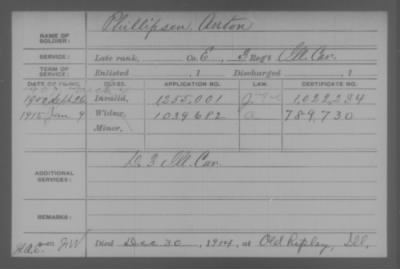 NAME OF SOLDIER: Phillipsen Anton
SERVICE: Late rank, Co. E, 3 Reg't Ill. Cav.
TERM OF SERVICE: Enlisted , 1 Discharged , 1
DATE OF FILING. CLASS. APPLICATION NO. LAW. CERTIFICATE NO.
1900 Sept 26 Invalid, 1255,001 1,022,234
1915 Jan 9 Widow, 1039682 789,730
Minor,
ADDITIONAL SERVICES: D. 3 Ill. Cav.
REMARKS:
Died Dec 30, 1914, at Old Ripley, Ill.